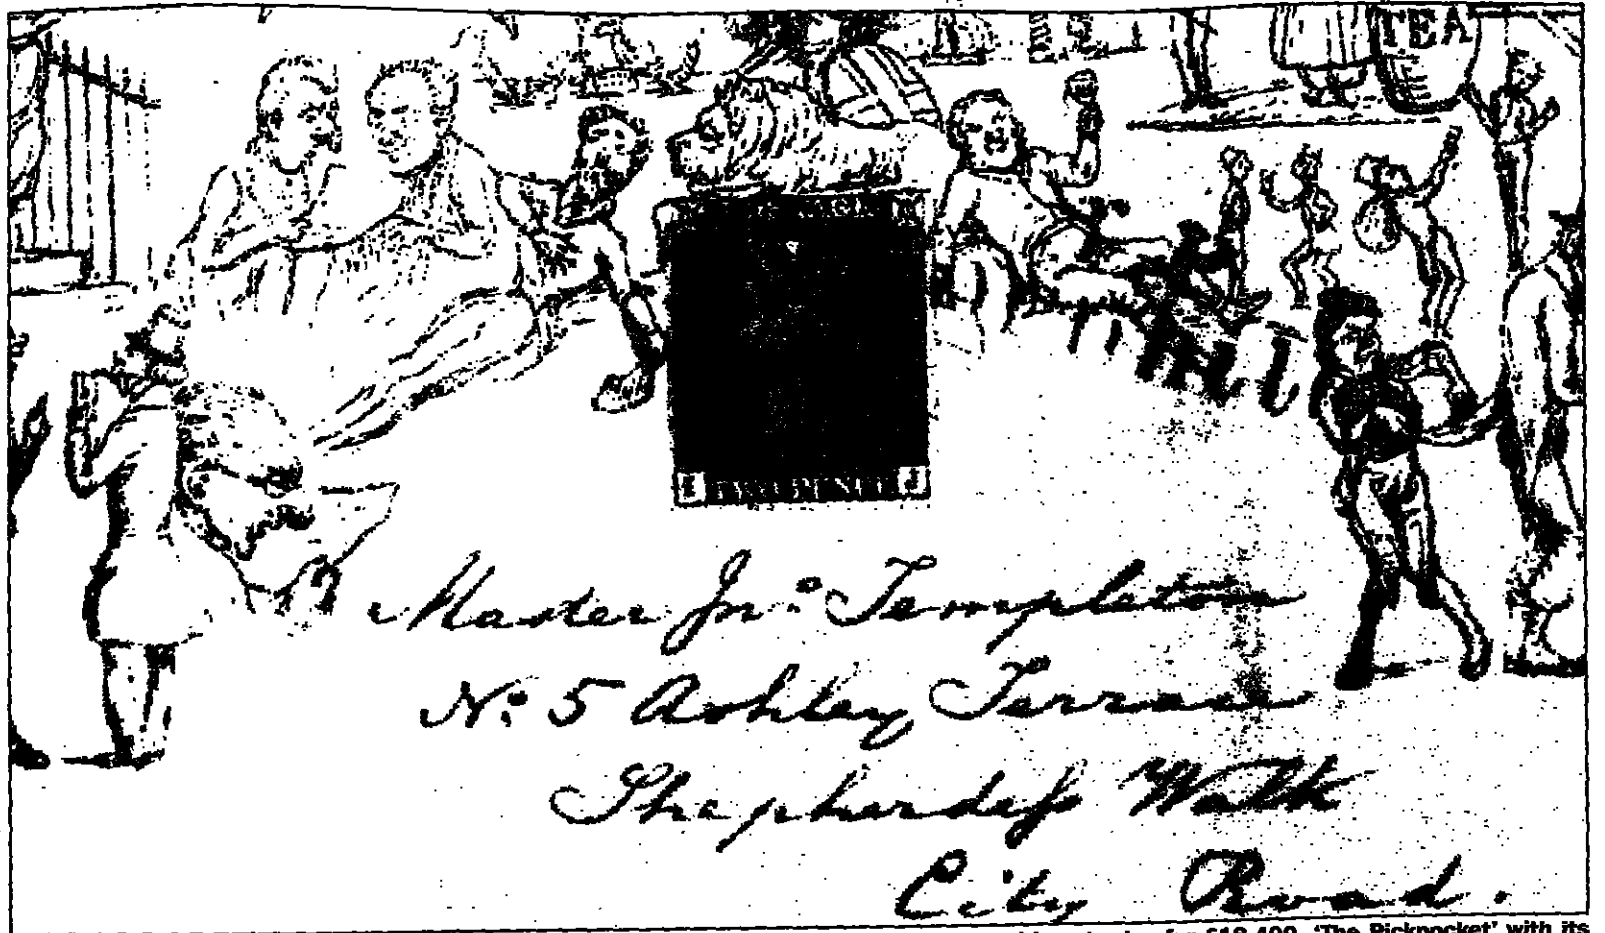 TEA
I TWO PENCE J
Master Jno. Templeton
No. 5 Ashley Terrace
Shepherdess Walk
City Road.
for £18,400. 'The Pickpocket' with its